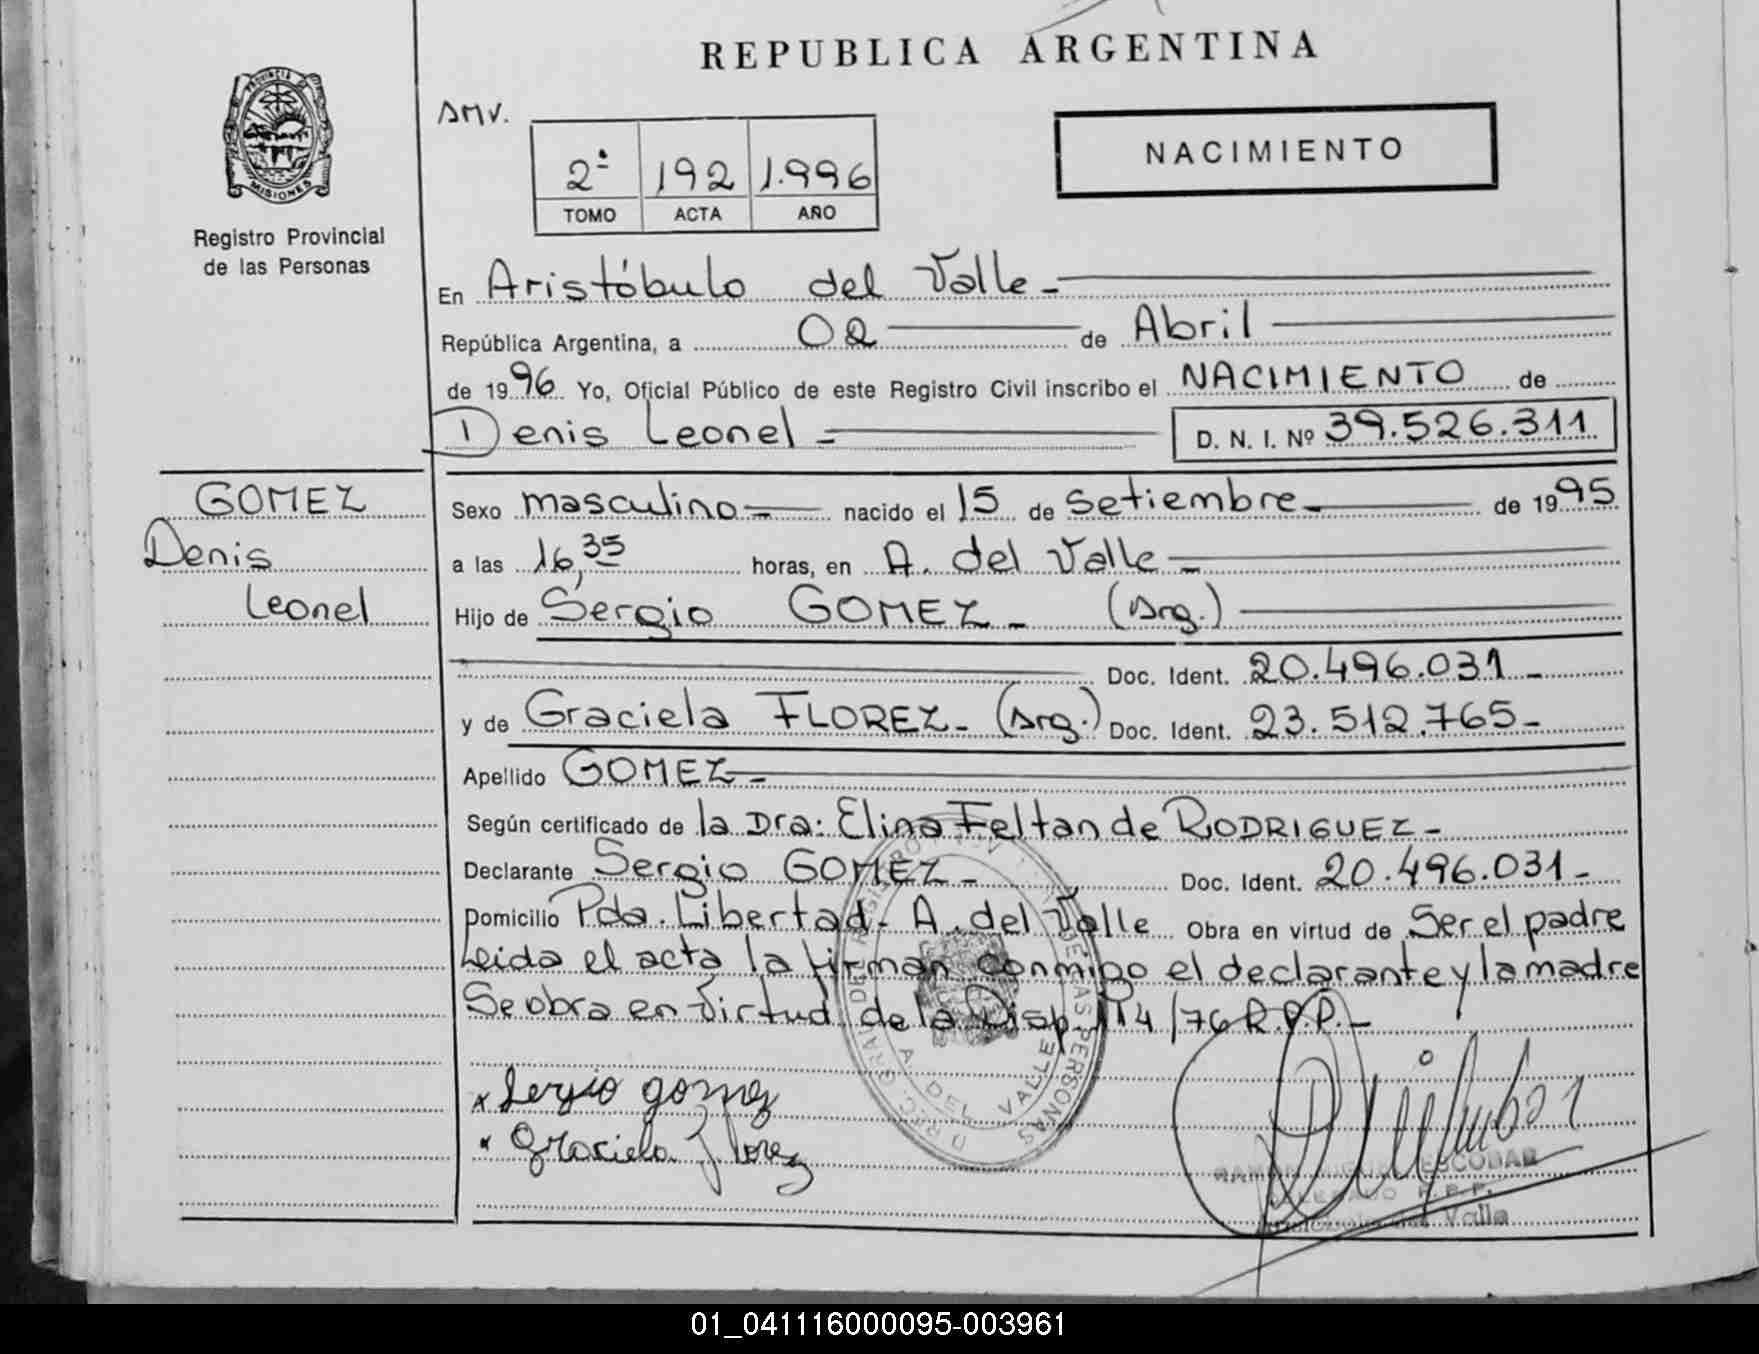 REPUBLICA ARGENTINA
PROVINCIA DE
MISIONES
Registro Provincial
de las Personas
AMV.
2º 192 1.996
TOMO ACTA AÑO
NACIMIENTO
En Aristóbulo del Valle -
República Argentina, a 02 de Abril
de 1996 Yo, Oficial Público de este Registro Civil inscribo el NACIMIENTO de
Denis Leonel - D. N. I. Nº 39.526.311
GOMEZ
Denis
Leonel
Sexo masculino - nacido el 15 de Setiembre - de 1995
a las 16,35 horas, en A. del Valle -
Hijo de Sergio GOMEZ - (Arg.)
Doc. Ident. 20.496.031 -
y de Graciela FLOREZ - (Arg.) Doc. Ident. 23.512.765 -
Apellido GOMEZ -
Según certificado de la Dra: Elina Feltan de RODRIGUEZ -
Declarante Sergio GOMEZ - Doc. Ident. 20.496.031 -
Domicilio Pda. Libertad - A. del Valle Obra en virtud de Ser el padre
Leida el acta la firman conmigo el declarante y la madre
Se obra en Virtud de la Disp. 114/76 R.P.P. -
x Sergio gomez
x Graciela Florez
A DEL VALLE
DE LAS PERSONAS
ESCOBAR
R.P.P.
del Valle
01_041116000095-003961